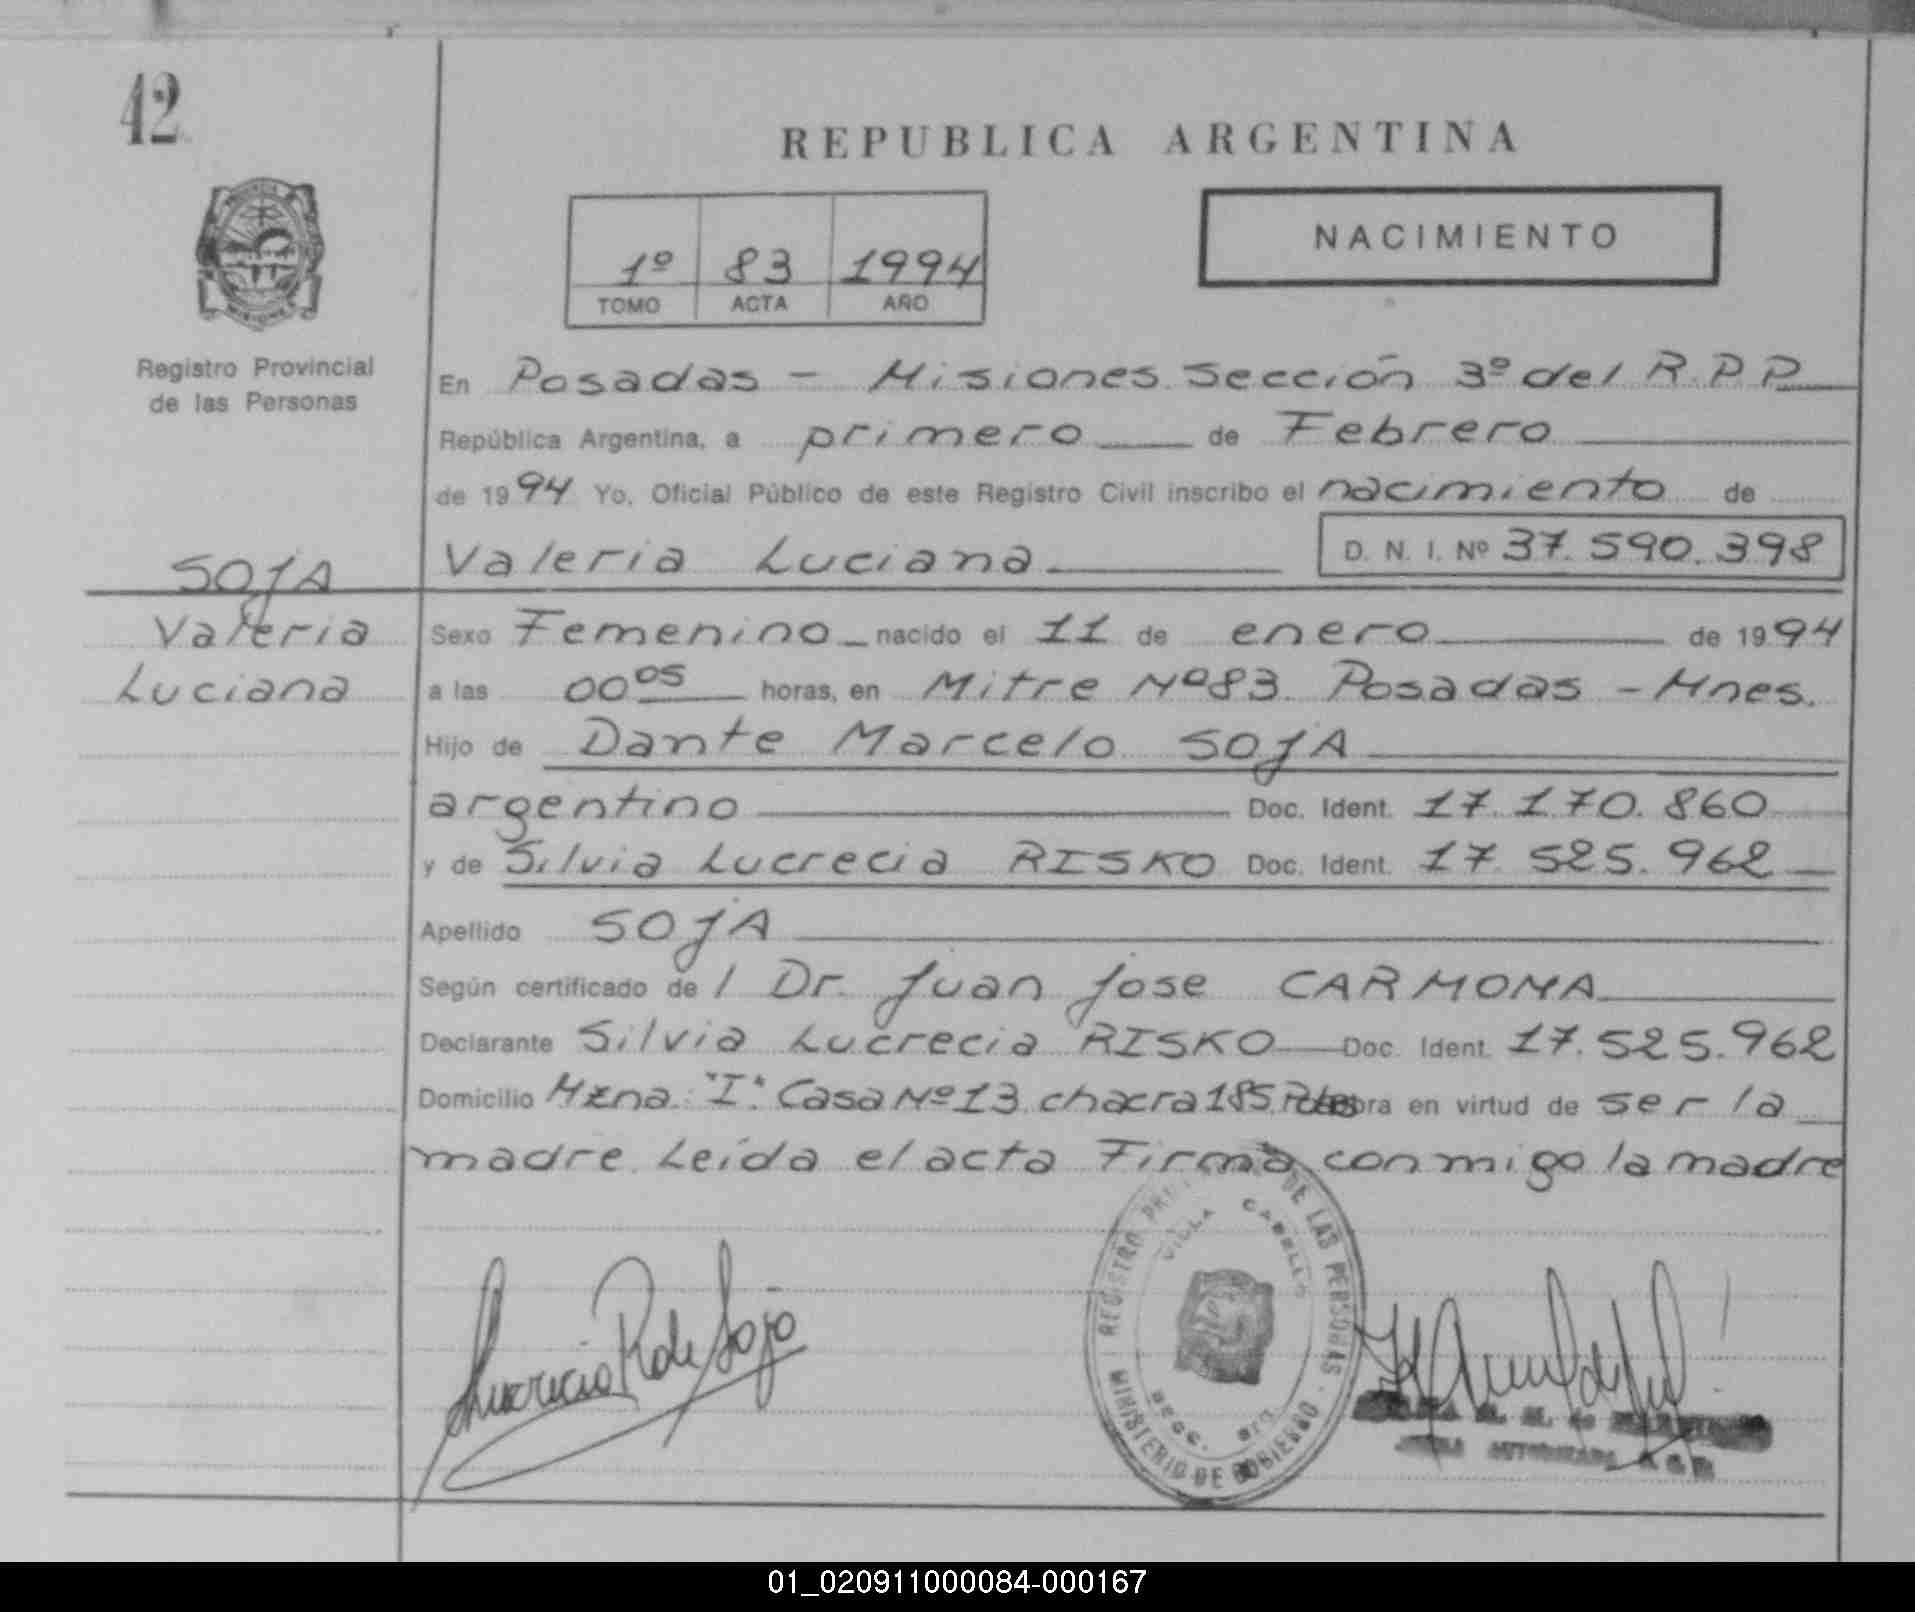 42
REPUBLICA ARGENTINA
1º 83 1994
TOMO ACTA AÑO
NACIMIENTO
Registro Provincial
de las Personas
En Posadas - Misiones Sección 3º del R.P.P
República Argentina, a primero de Febrero
de 1994 Yo, Oficial Público de este Registro Civil inscribo el nacimiento de
Valeria Luciana D. N. I. Nº 37.590.398
SOJA
Valeria
Luciana
Sexo Femenino nacido el 11 de enero de 1994
a las 00 05 horas, en Mitre Nº 83 Posadas - Mnes.
Hijo de Dante Marcelo SOJA
argentino Doc. Ident. 17.170.860
y de Silvia Lucrecia RISKO Doc. Ident. 17.525.962
Apellido SOJA
Según certificado de l Dr. Juan Jose CARMONA
Declarante Silvia Lucrecia RISKO Doc. Ident. 17.525.962
Domicilio Mzna. "I" Casa Nº 13 chacra 185 en virtud de ser la
madre. Leída el acta Firma conmigo la madre
REGISTRO DE LAS PERSONAS
VILLA CABELLO
MINISTERIO DE GOBIERNO
01_020911000084-000167